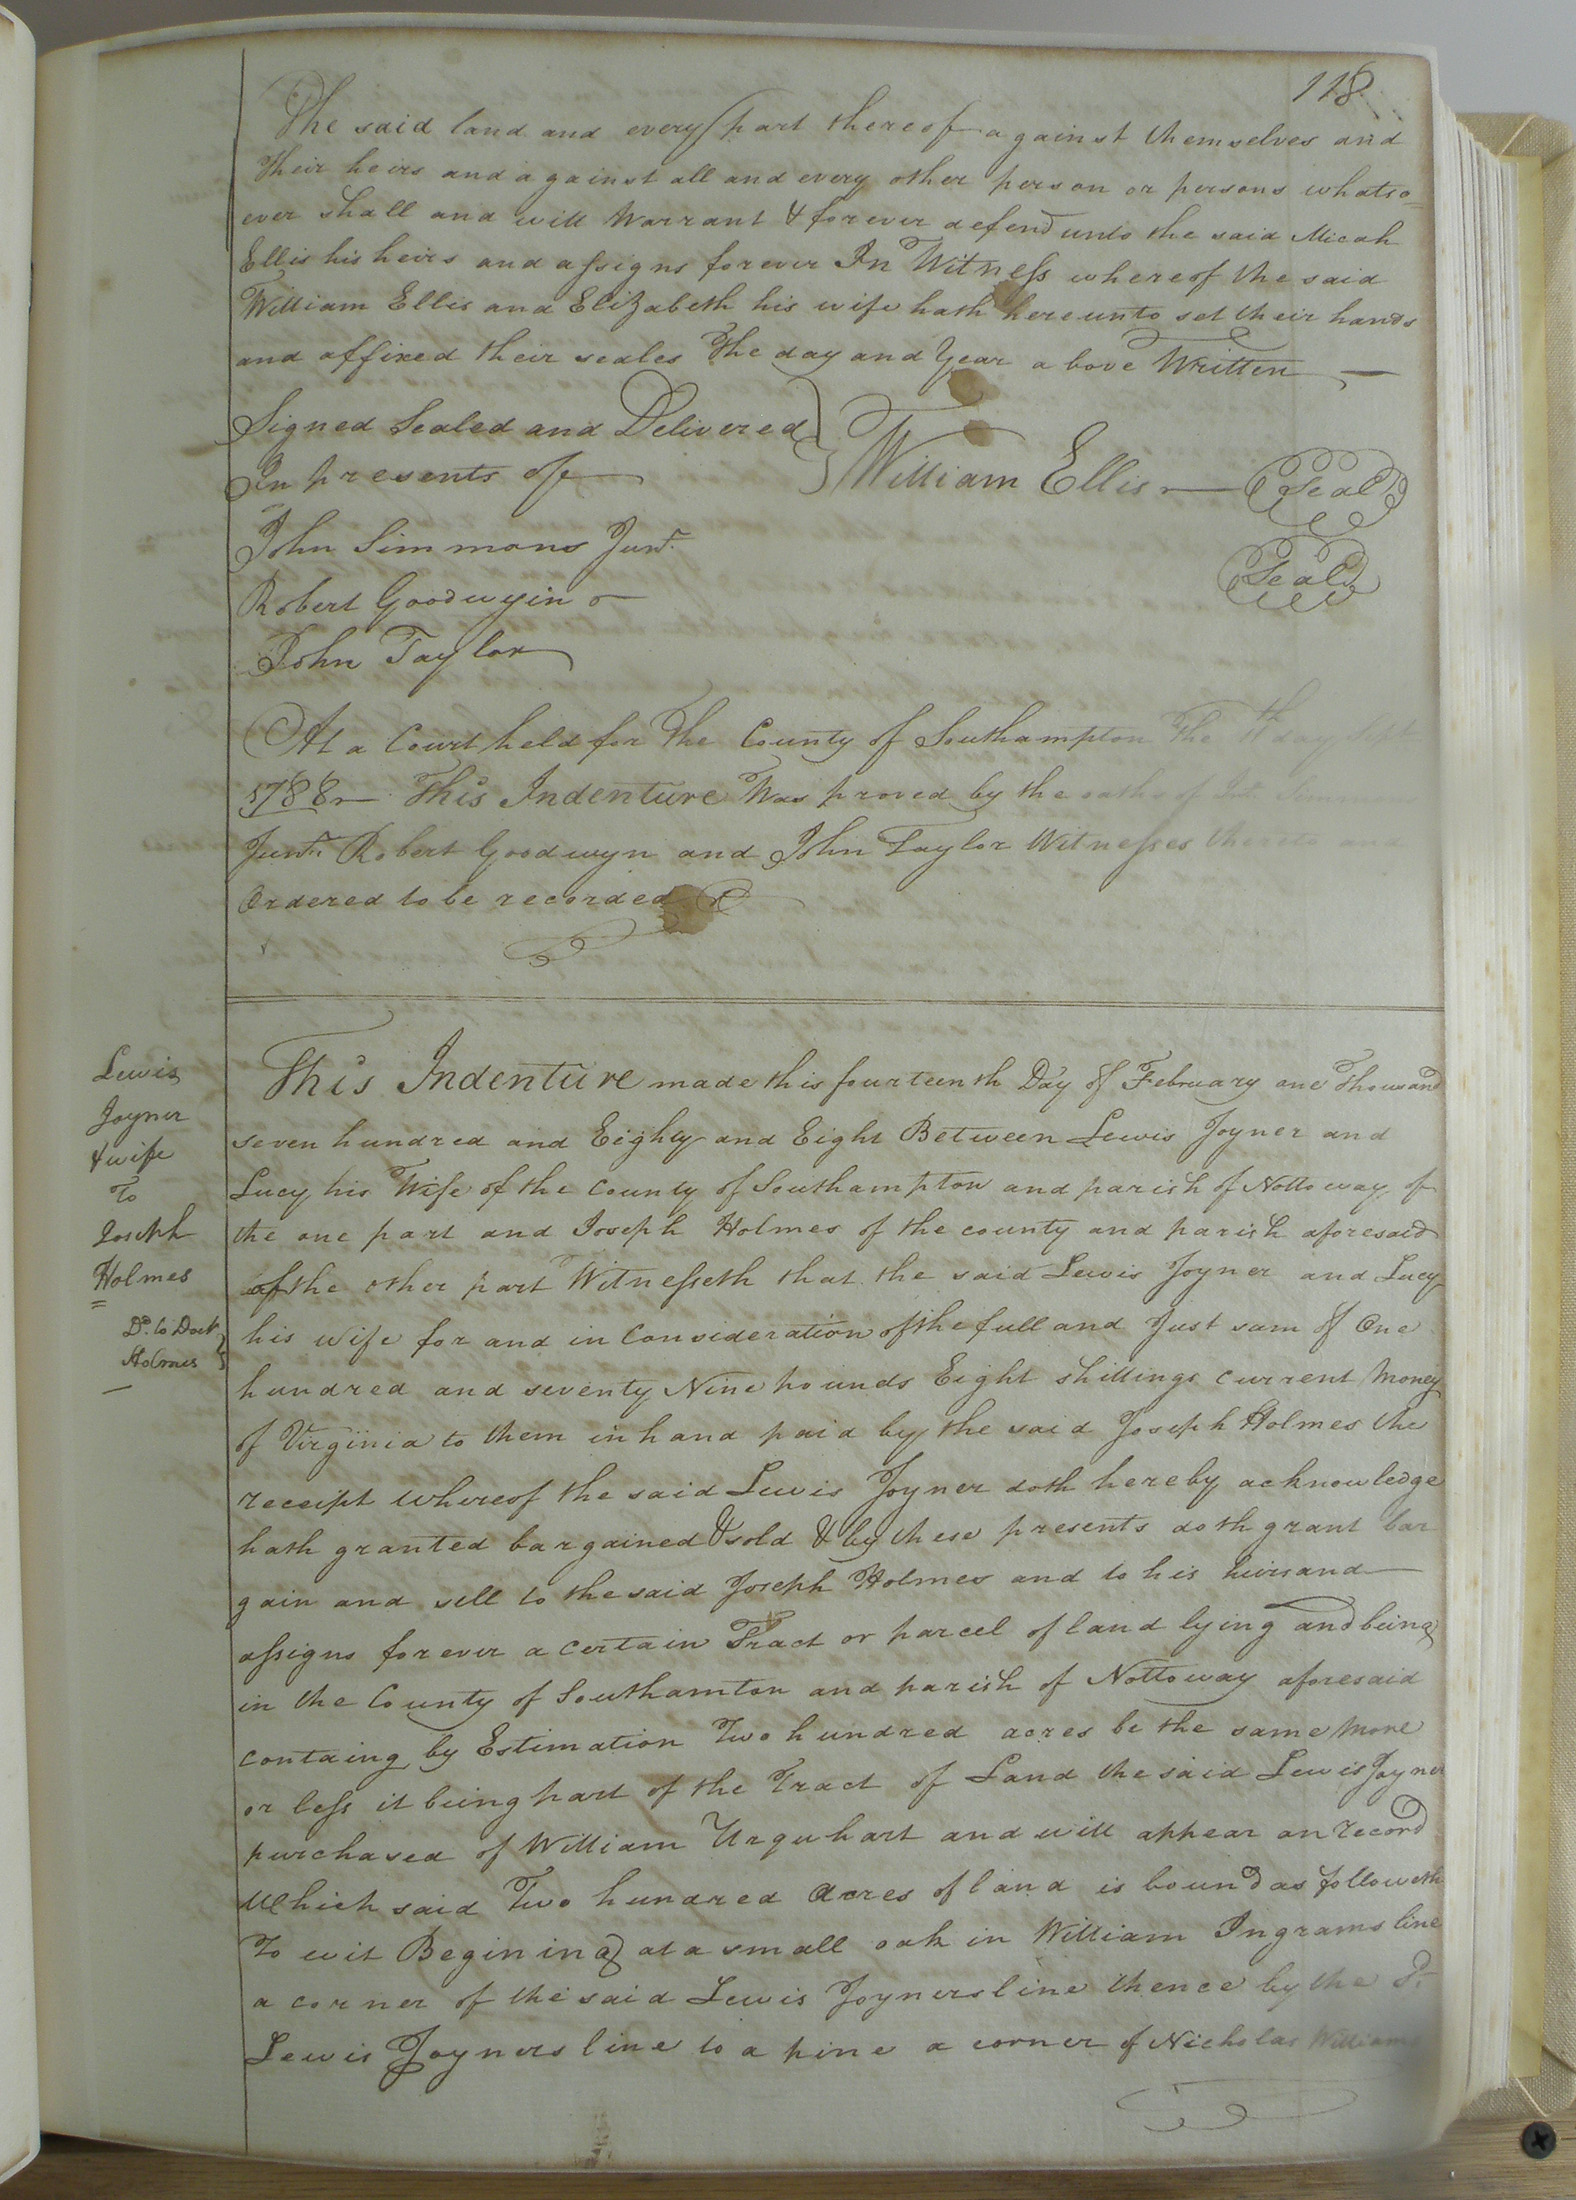 118
The said land and every part thereof against themselves and
their heirs and against all and every other person or persons whatso=
ever shall and will Warrant & forever defend unto the said Micah
Ellis his heirs and assigns forever In Witness whereof the said
William Ellis and Elizabeth his wife hath hereunto set their hands
and affixed their seales The day and Year above Written
Signed Sealed and Delivered
In presents of
William Ellis Seal
John Simmons Junr.
Seal
Robert Goodwyin
John Taylor
At a Court held for The County of Southampton The day
1788 This Indenture Was proved by the oaths of
Junr. Robert Goodwyn and John Taylor Witnesses thereto and
Ordered to be recorded
Lewis
Joyner
& wife
To
Joseph
Holmes
Do. to Dock.
Holmes
This Indenture made this fourteenth Day of February one Thousand
seven hundred and Eighty and Eight Between Lewis Joyner and
Lucy his Wife of the County of Southampton and parish of Nottoway of
the one part and Joseph Holmes of the county and parish aforesaid
of the other part Witnesseth that the said Lewis Joyner and Lucy
his wife for and in Consideration of the full and Just sum of One
hundred and seventy Nine pounds Eight shillings current Money
of Virginia to them in hand paid by the said Joseph Holmes the
receipt whereof the said Lewis Joyner doth hereby acknowledge
hath granted bargained & sold & by these presents doth grant bar
gain and sell to the said Joseph Holmes and to his heirs and
assigns forever a certain Tract or parcel of land lying and being
in the County of Southamton and parish of Nottoway aforesaid
containg by Estimation Two hundred acres be the same More
or less it being part of the Tract of Land the said Lewis Joyner
purchased of William Urquhart and will appear on record
Which said Two hundred Acres of land is bound as followeth
To wit Begining at a small oak in William Ingrams line
a corner of the said Lewis Joyners line thence by the Sd.
Lewis Joyners line to a pine a corner of Nicholas Williams